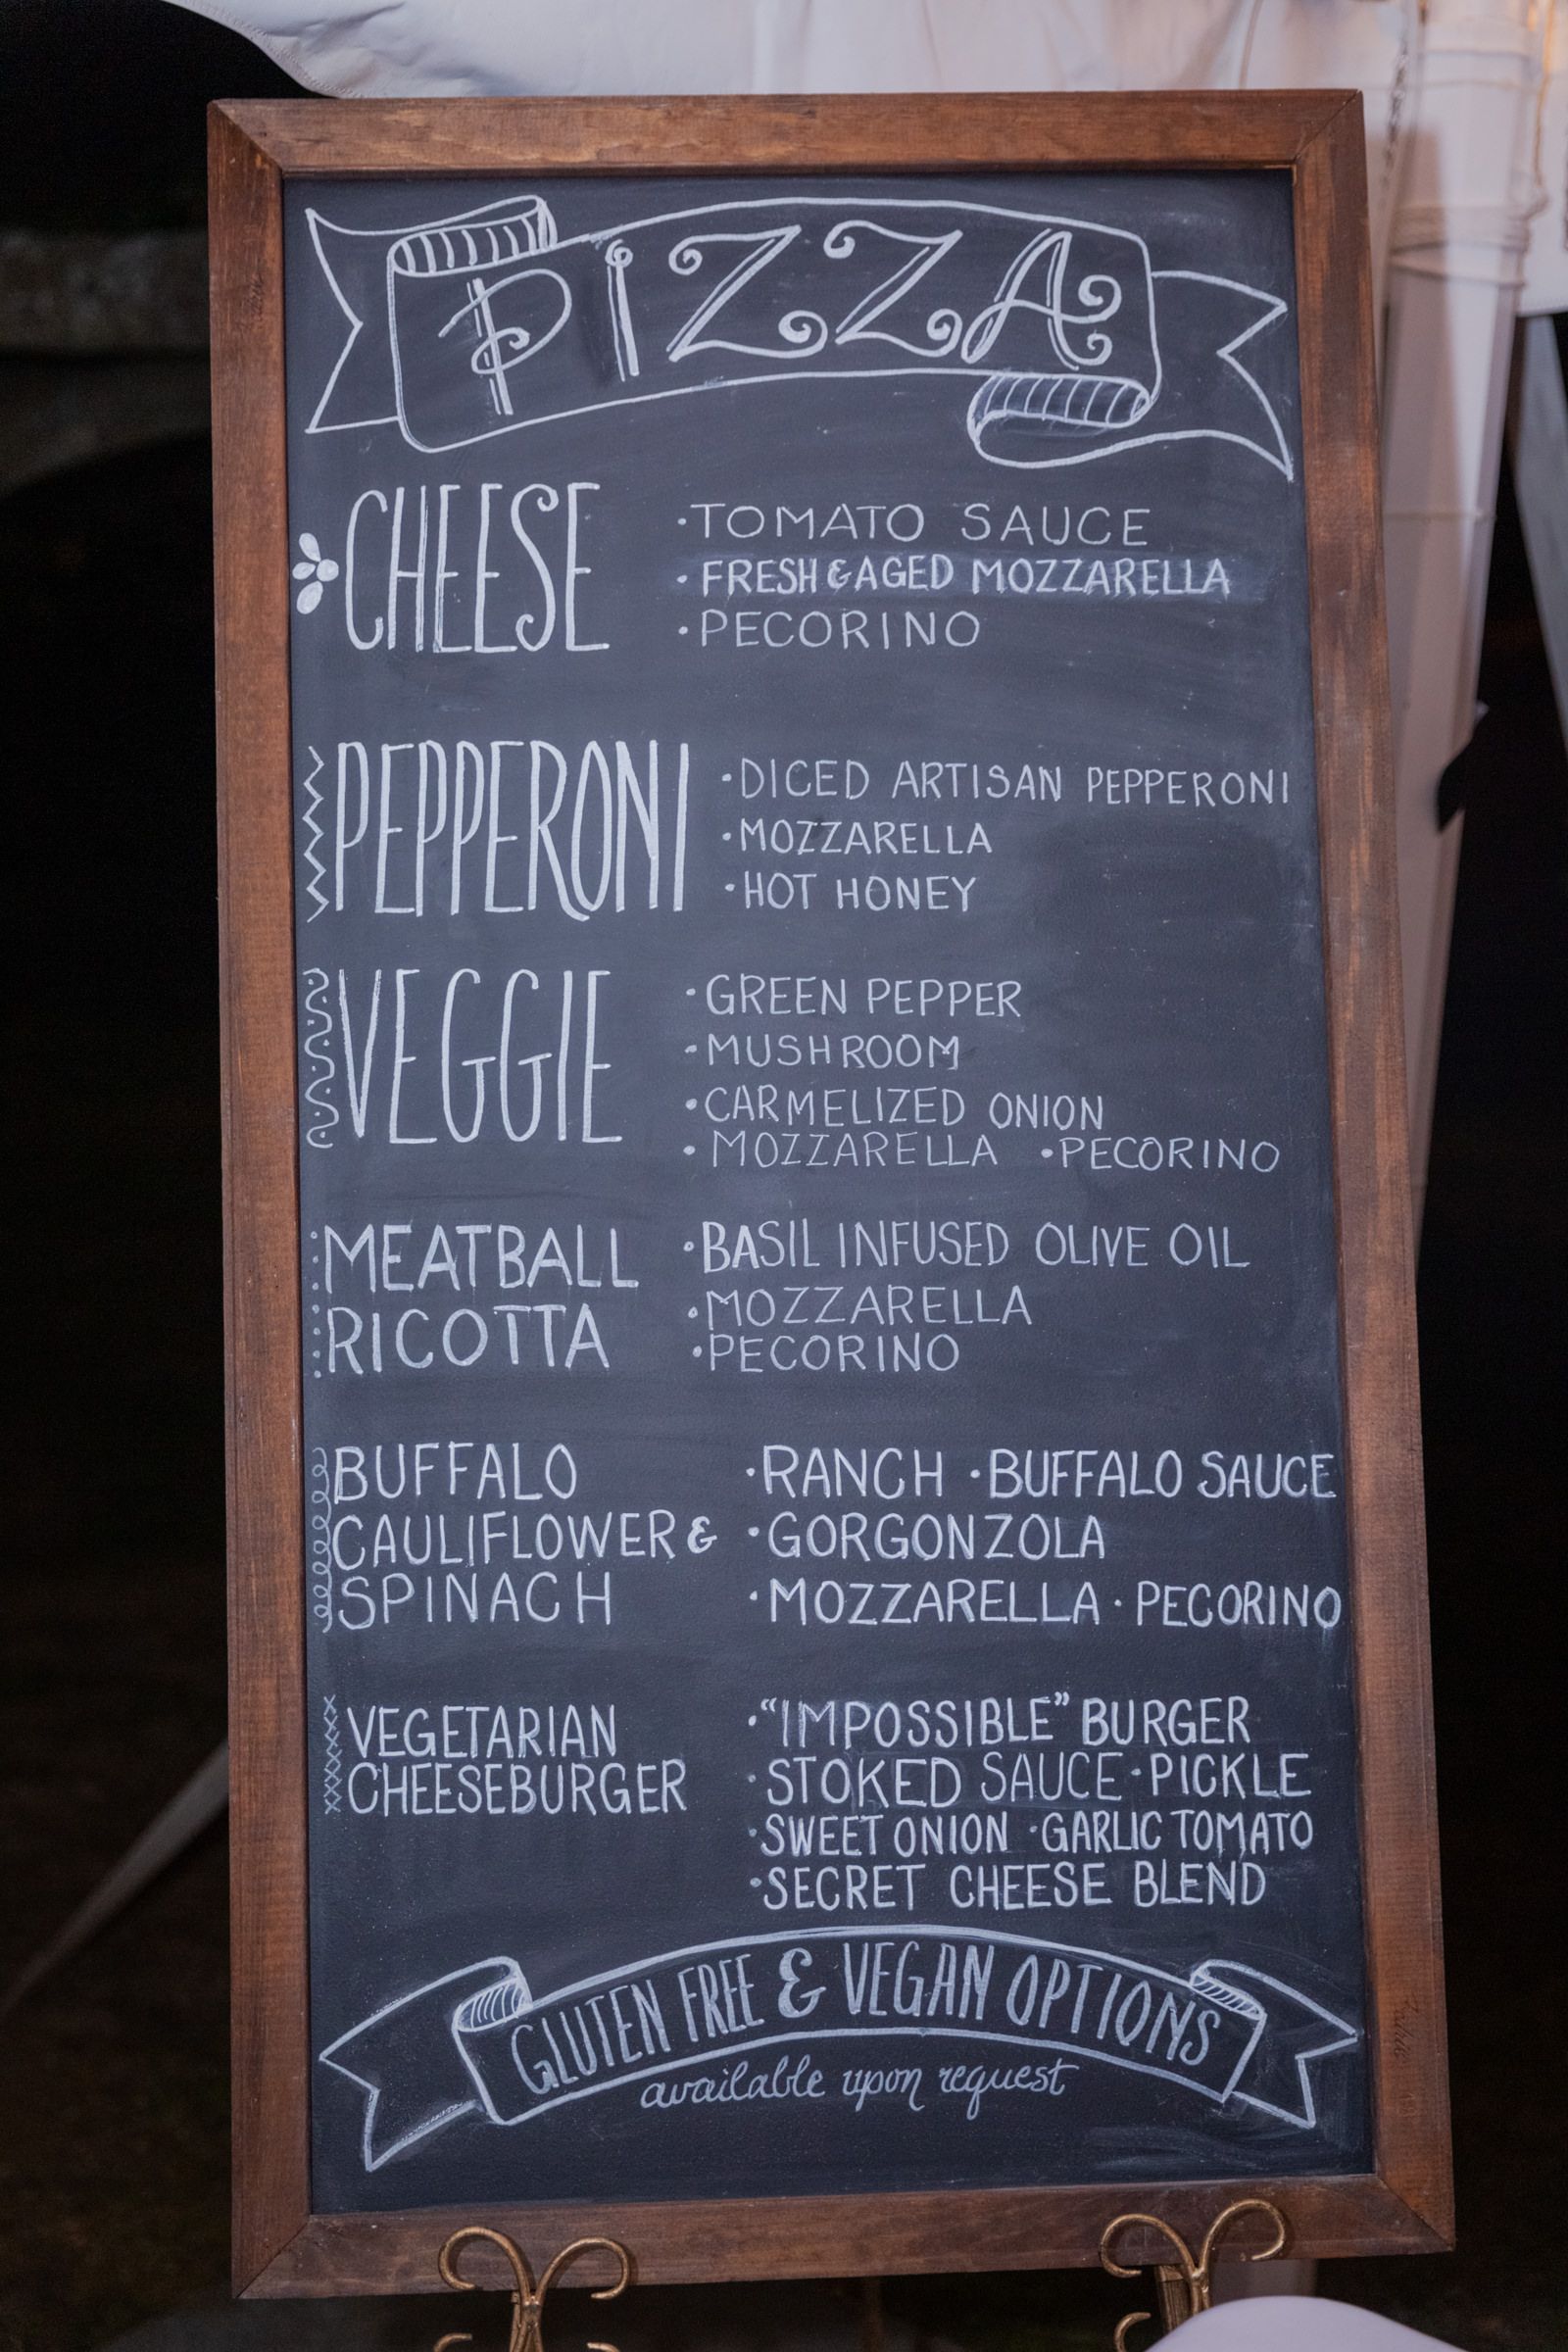 PIZZA
CHEESE
·TOMATO SAUCE
·FRESH & AGED MOZZARELLA
·PECORINO
PEPPERONI
·DICED ARTISAN PEPPERONI
·MOZZARELLA
·HOT HONEY
VEGGIE
·GREEN PEPPER
·MUSHROOM
·CARMELIZED ONION
·MOZZARELLA ·PECORINO
MEATBALL
RICOTTA
·BASIL INFUSED OLIVE OIL
·MOZZARELLA
·PECORINO
BUFFALO
CAULIFLOWER &
SPINACH
·RANCH ·BUFFALO SAUCE
·GORGONZOLA
·MOZZARELLA · PECORINO
VEGETARIAN
CHEESEBURGER
·"IMPOSSIBLE" BURGER
·STOKED SAUCE ·PICKLE
·SWEET ONION ·GARLIC TOMATO
·SECRET CHEESE BLEND
GLUTEN FREE & VEGAN OPTIONS
available upon request